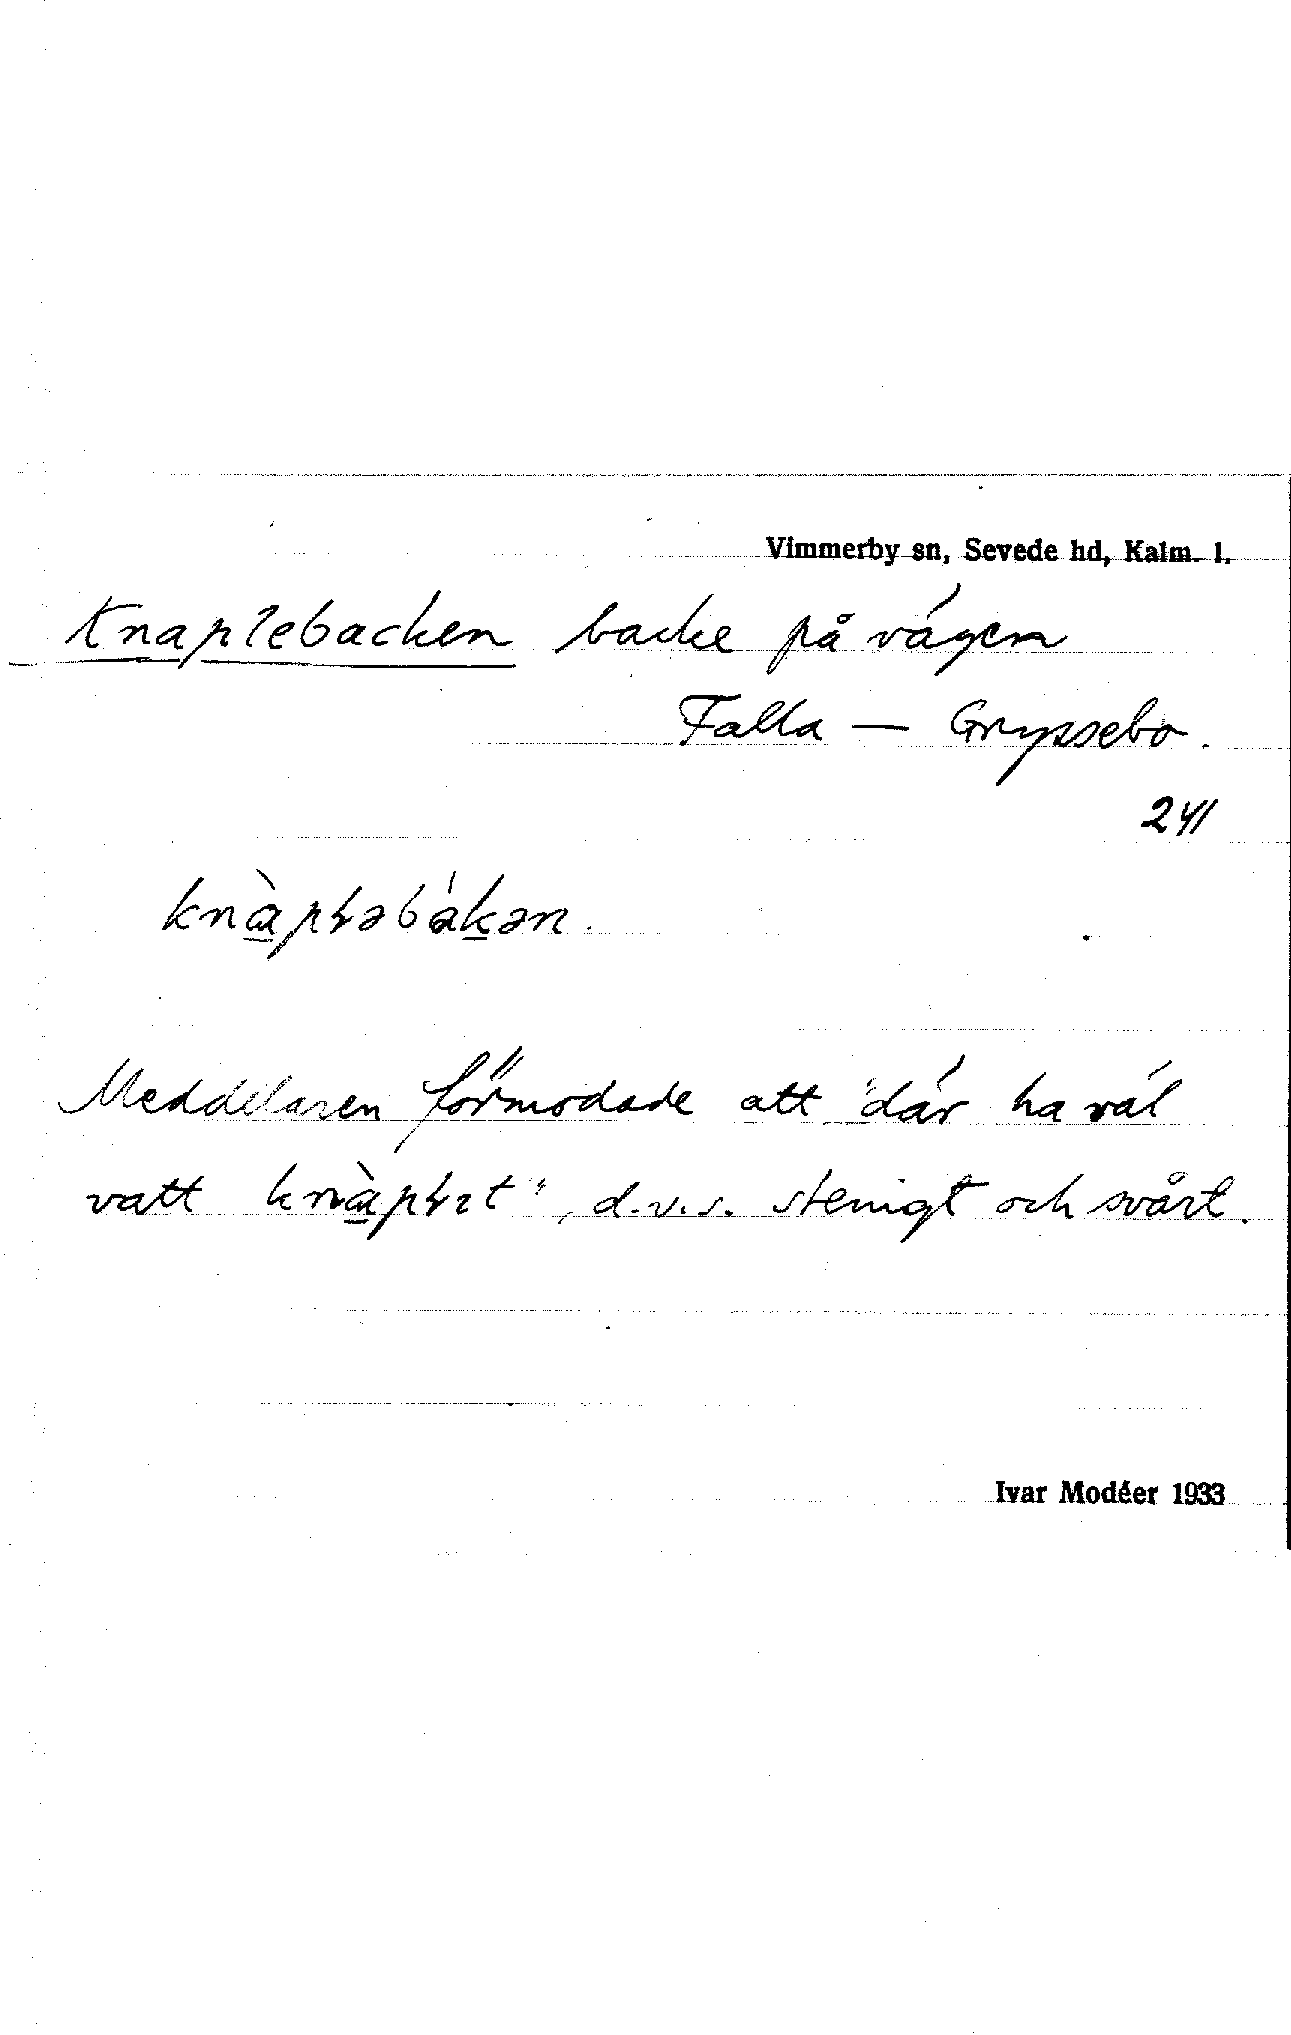 Vimmerby sn, Sevede hd, Kalm. l.
Knaplebacken backe på vägen
Falla — Gryssebo.
241
knàpɫəbákən.
Meddelaren förmodade att "där ha väl
vatt knàpɫıt", d.v.s. stenigt och svårt.
Ivar Modéer 1933